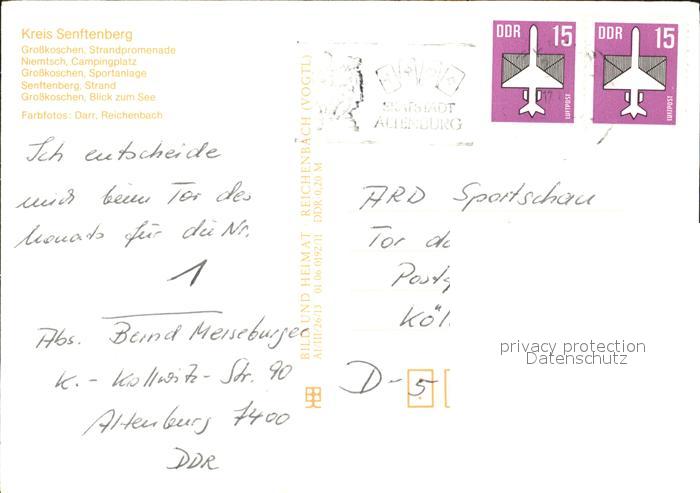 Kreis Senftenberg
Großkoschen, Strandpromenade
Niemtsch, Campingplatz
Großkoschen, Sportanlage
Senftenberg, Strand
Großkoschen, Blick zum See
Farbfotos: Darr, Reichenbach
Ich entscheide
mich beim Tor des
Monats für die Nr.
1
Abs. Bernd Merseburger
K.-Kollwitz-Str. 90
Altenburg 7400
DDR
BILD UND HEIMAT REICHENBACH (VOGTL)
A1/III/26/13 01 06 0192/11 DDR 0,20 M
SKATSTADT
ALTENBURG
DDR 15
LUFTPOST
DDR 15
LUFTPOST
ARD Sportschau
Tor d
Post
Köl
D-5
privacy protection
Datenschutz